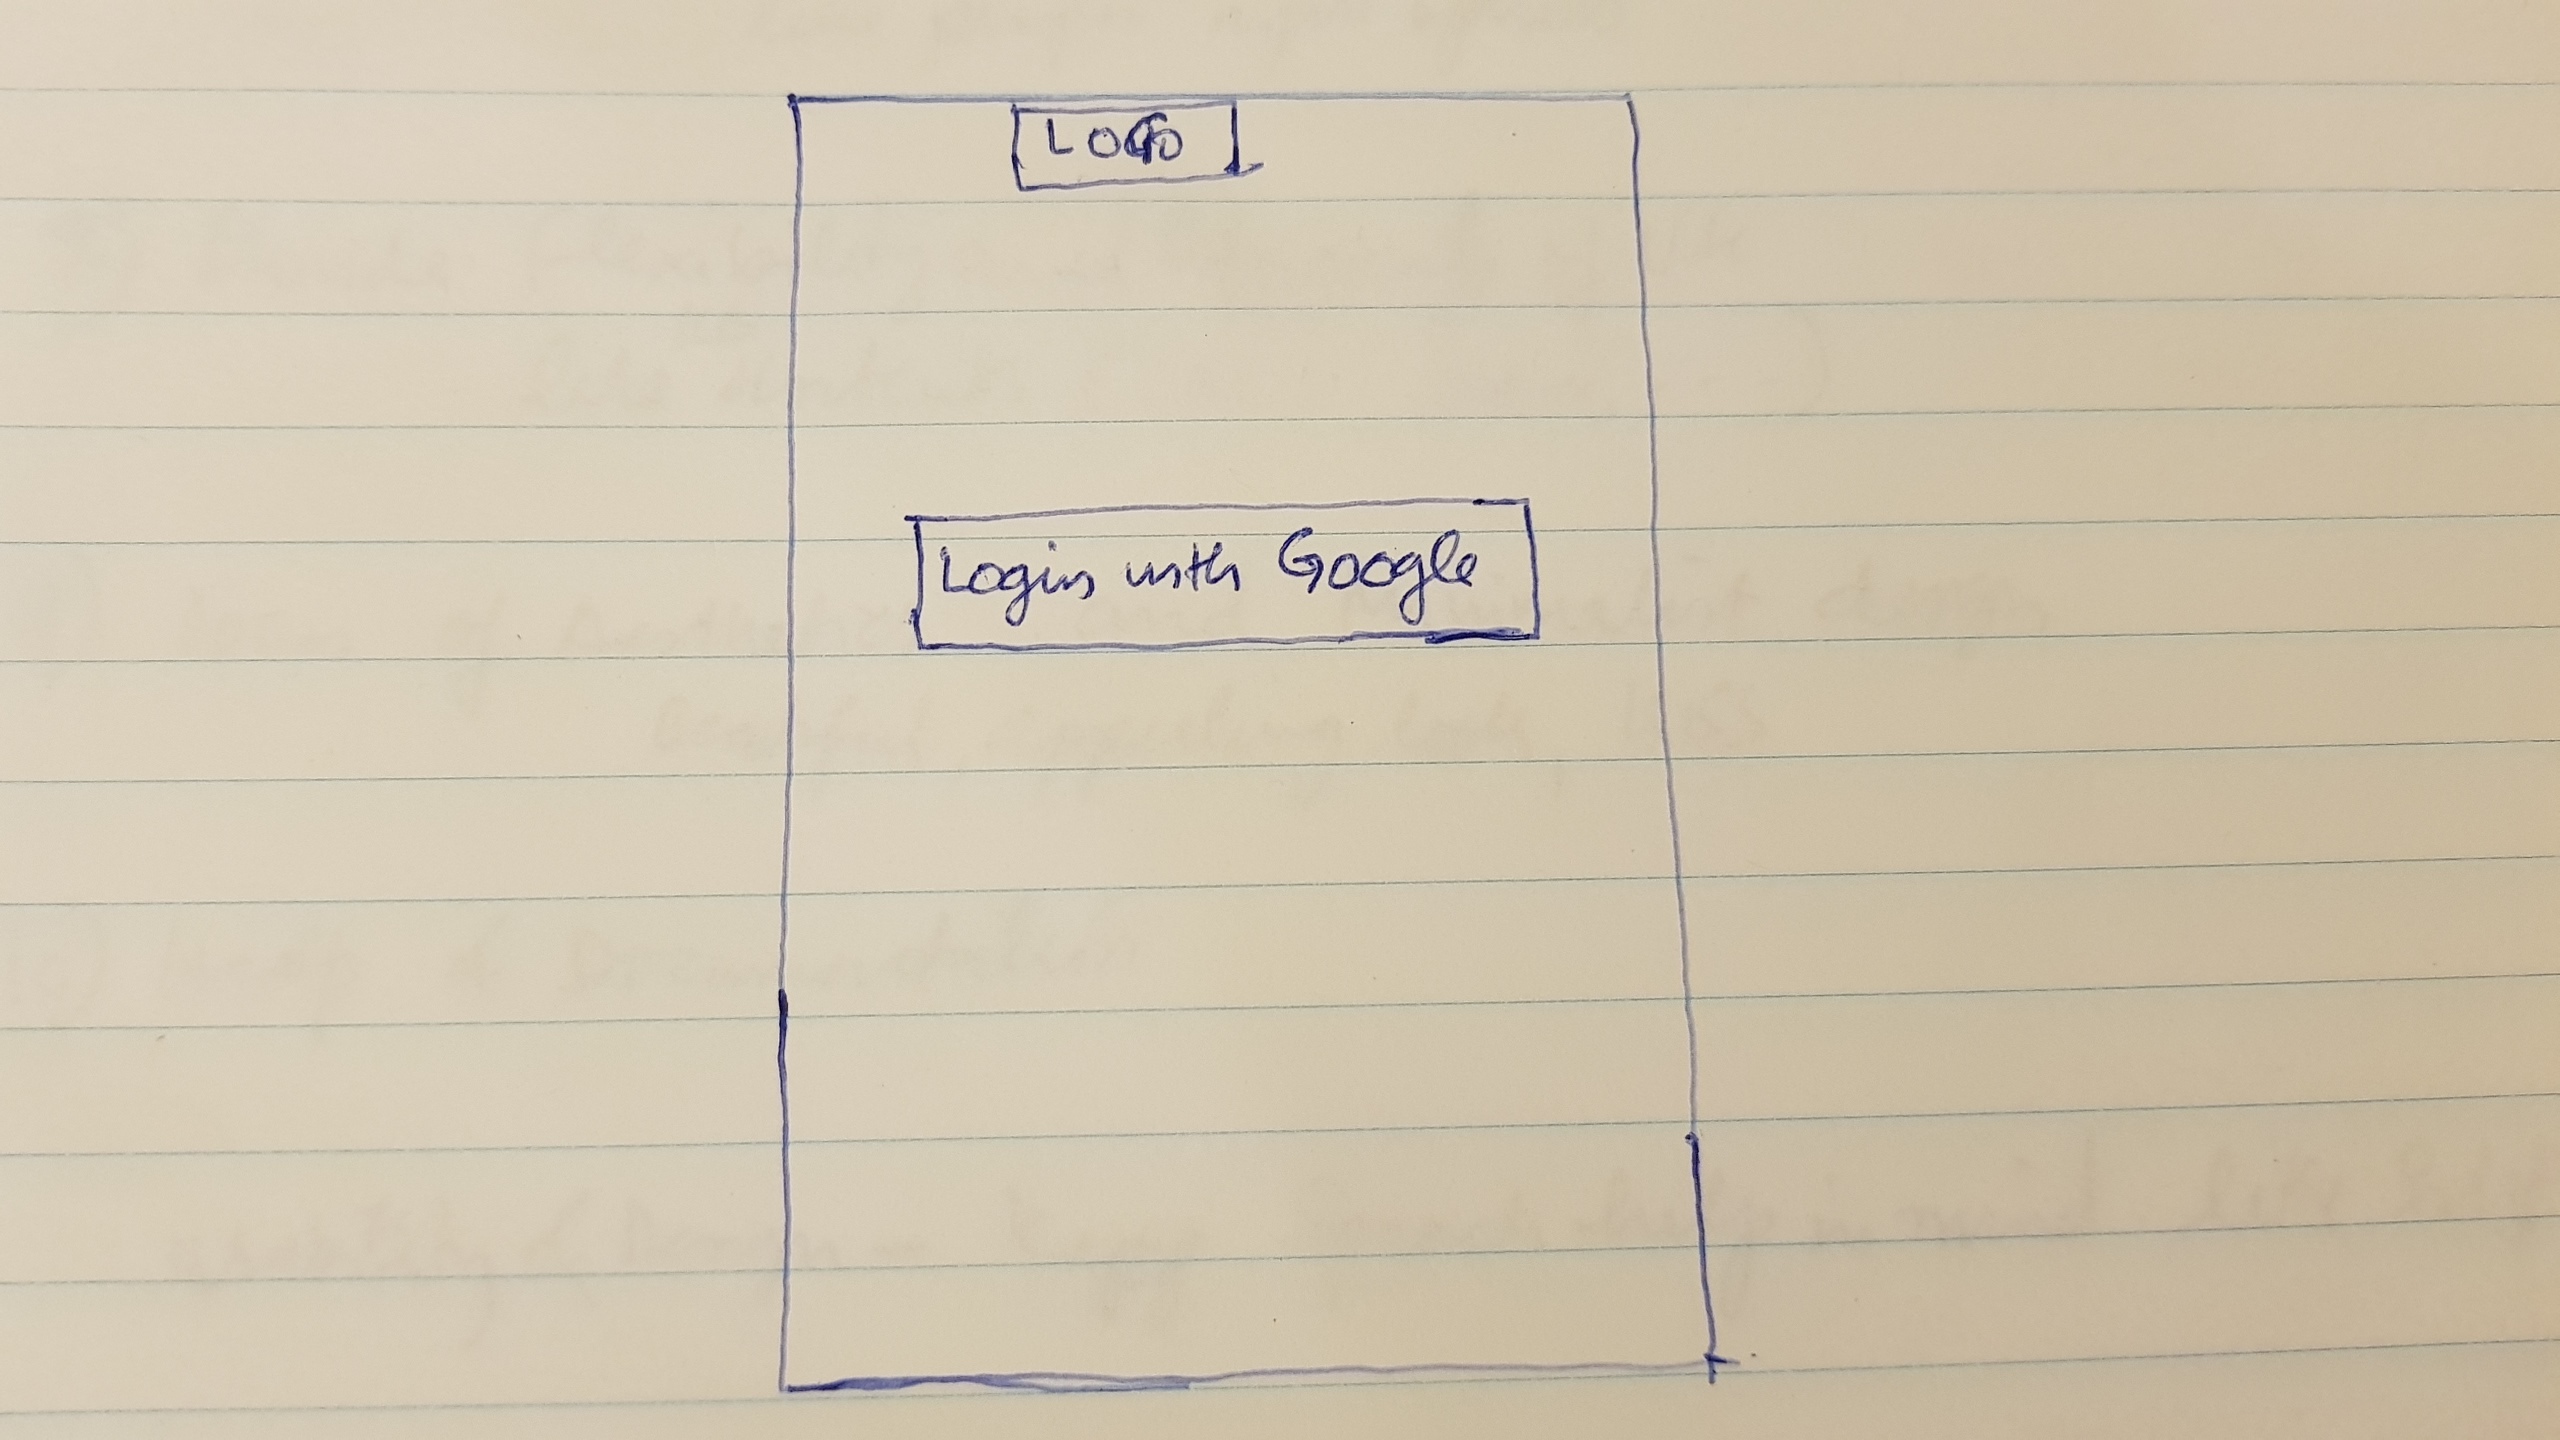 LOGO
Login with Google